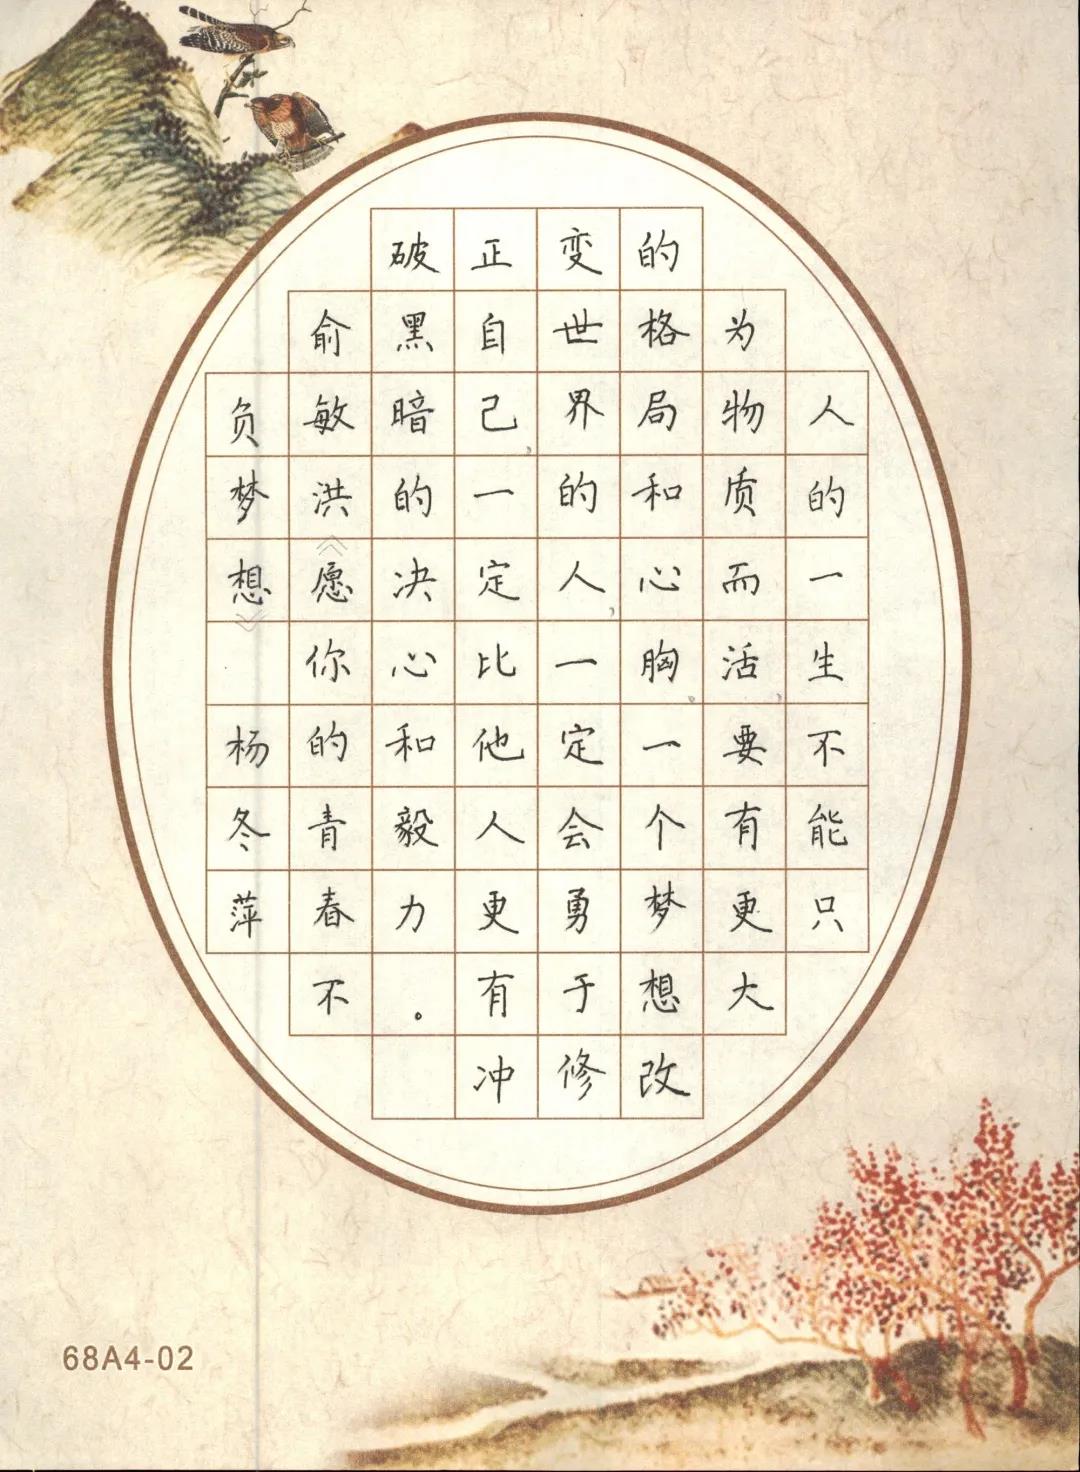 人的一生不能只
为物质而活,要有更大
的格局和心胸,一个梦想改
变世界的人,一定会勇于修
正自己,一定比他人更有冲
破黑暗的决心和毅力。
俞敏洪《愿你的青春不
负梦想》 杨冬萍
68A4-02